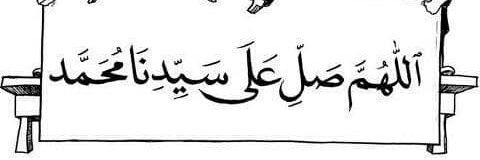 ٱللّٰهُمَّ صَلِّ عَلَى سَيِّدِنَا مُحَمَّد